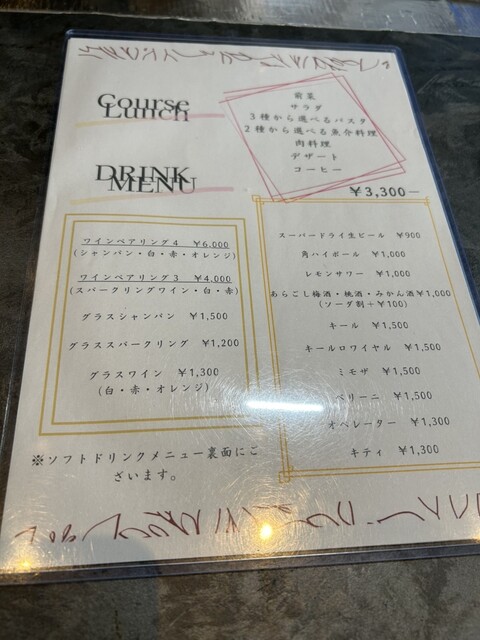 Course
Lunch
前菜
サラダ
3種から選べるパスタ
2種から選べる魚介料理
肉料理
デザート
コーヒー
¥3,300―
DRINK
MENU
ワインペアリング4 ¥6,000
(シャンパン・白・赤・オレンジ)
ワインペアリング3 ¥4,000
(スパークリングワイン・白・赤)
グラスシャンパン ¥1,500
グラススパークリング ¥1,200
グラスワイン ¥1,300
(白・赤・オレンジ)
※ソフトドリンクメニュー裏面にご
ざいます。
スーパードライ生ビール ¥900
角ハイボール ¥1,000
レモンサワー ¥1,000
あらごし梅酒・桃酒・みかん酒¥1,000
(ソーダ割+¥100)
キール ¥1,500
キールロワイヤル ¥1,500
ミモザ ¥1,500
ベリーニ ¥1,500
オペレーター ¥1,300
キティ ¥1,300